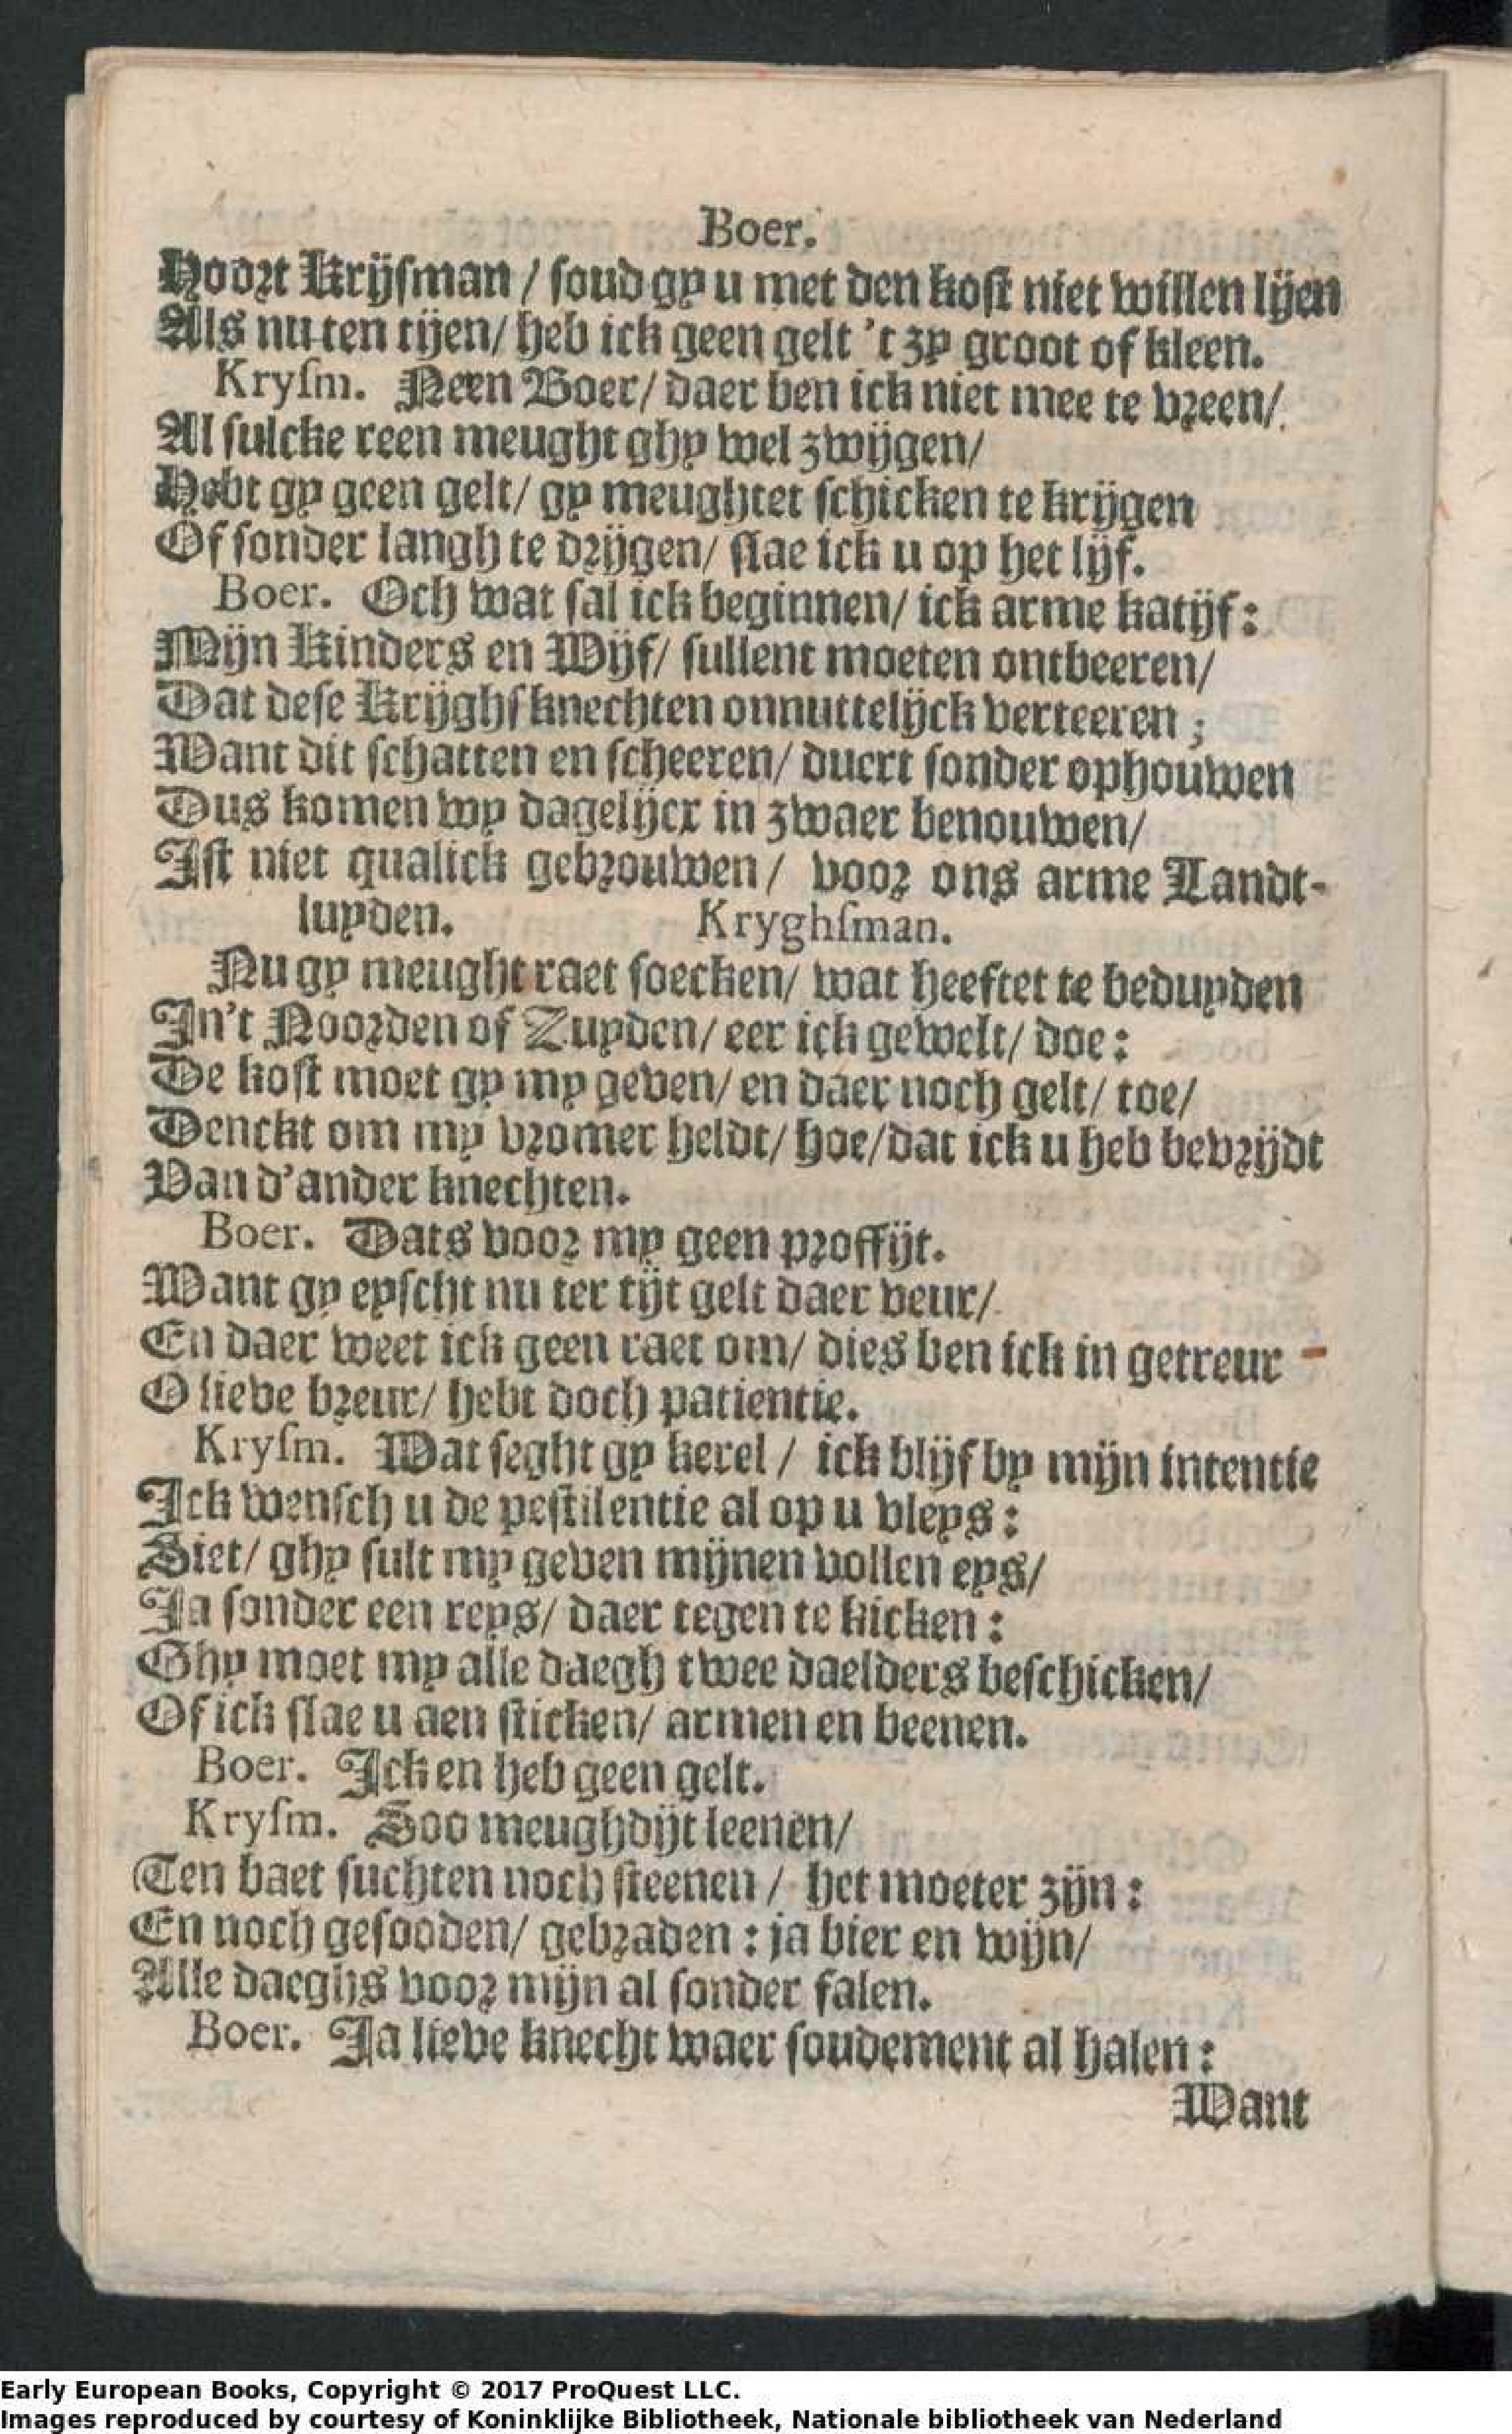 Boer.
Hoort Krijsman / soud gy u met den kost niet willen lijen
Als nu ten tijen / heb ick geen gelt 't zy groot of kleen.
Krysm. Neen Boer / daer ben ick niet mee te vreen /
Al sulcke reen meught ghy wel zwijgen /
Hebt gy geen gelt / gy meughtet schicken te krijgen
Of sonder langh te drijgen / slae ick u op het lijf.
Boer. Och wat sal ick beginnen / ick arme katijf :
Mijn Kinders en Wijf / sullent moeten ontbeeren /
Dat dese Krijghsknechten onnuttelijck verteeren ;
Want dit schatten en scheeren / duert sonder ophouwen
Dus komen wy dagelijcx in zwaer benouwen /
Ist niet qualick gebrouwen / voor ons arme Landt-
luyden. Kryghsman.
Nu gy meught raet soecken / wat heeftet te beduyden
In't Noorden of Zuyden / eer ick gewelt / doe :
De kost moet gy my geven / en daer noch gelt / toe /
Denckt om my vromer heldt / hoe / dat ick u heb bevrijdt
Van d'ander knechten.
Boer. Dats voor my geen proffijt.
Want gy eyscht nu ter tijt gelt daer veur /
En daer weet ick geen raet om / dies ben ick in getreur
O lieve breur / hebt doch patientie.
Krysm. Wat seght gy kerel / ick blijf by mijn intentie
Ick wensch u de pestilentie al op u vleys :
Siet / ghy sult my geven mijnen vollen eys /
Ja sonder een reys / daer tegen te kicken :
Ghy moet my alle daegh twee daelders beschicken /
Of ick slae u aen sticken / armen en beenen.
Boer. Ick en heb geen gelt.
Krysm. Soo meughdijt leenen /
Ten baet suchten noch steenen / het moeter zijn :
En noch gesooden / gebraden : ja bier en wijn /
Alle daeghs voor mijn al sonder falen.
Boer. Ja lieve knecht waer soudement al halen :
Want
Early European Books, Copyright © 2017 ProQuest LLC.
Images reproduced by courtesy of Koninklijke Bibliotheek, Nationale bibliotheek van Nederland